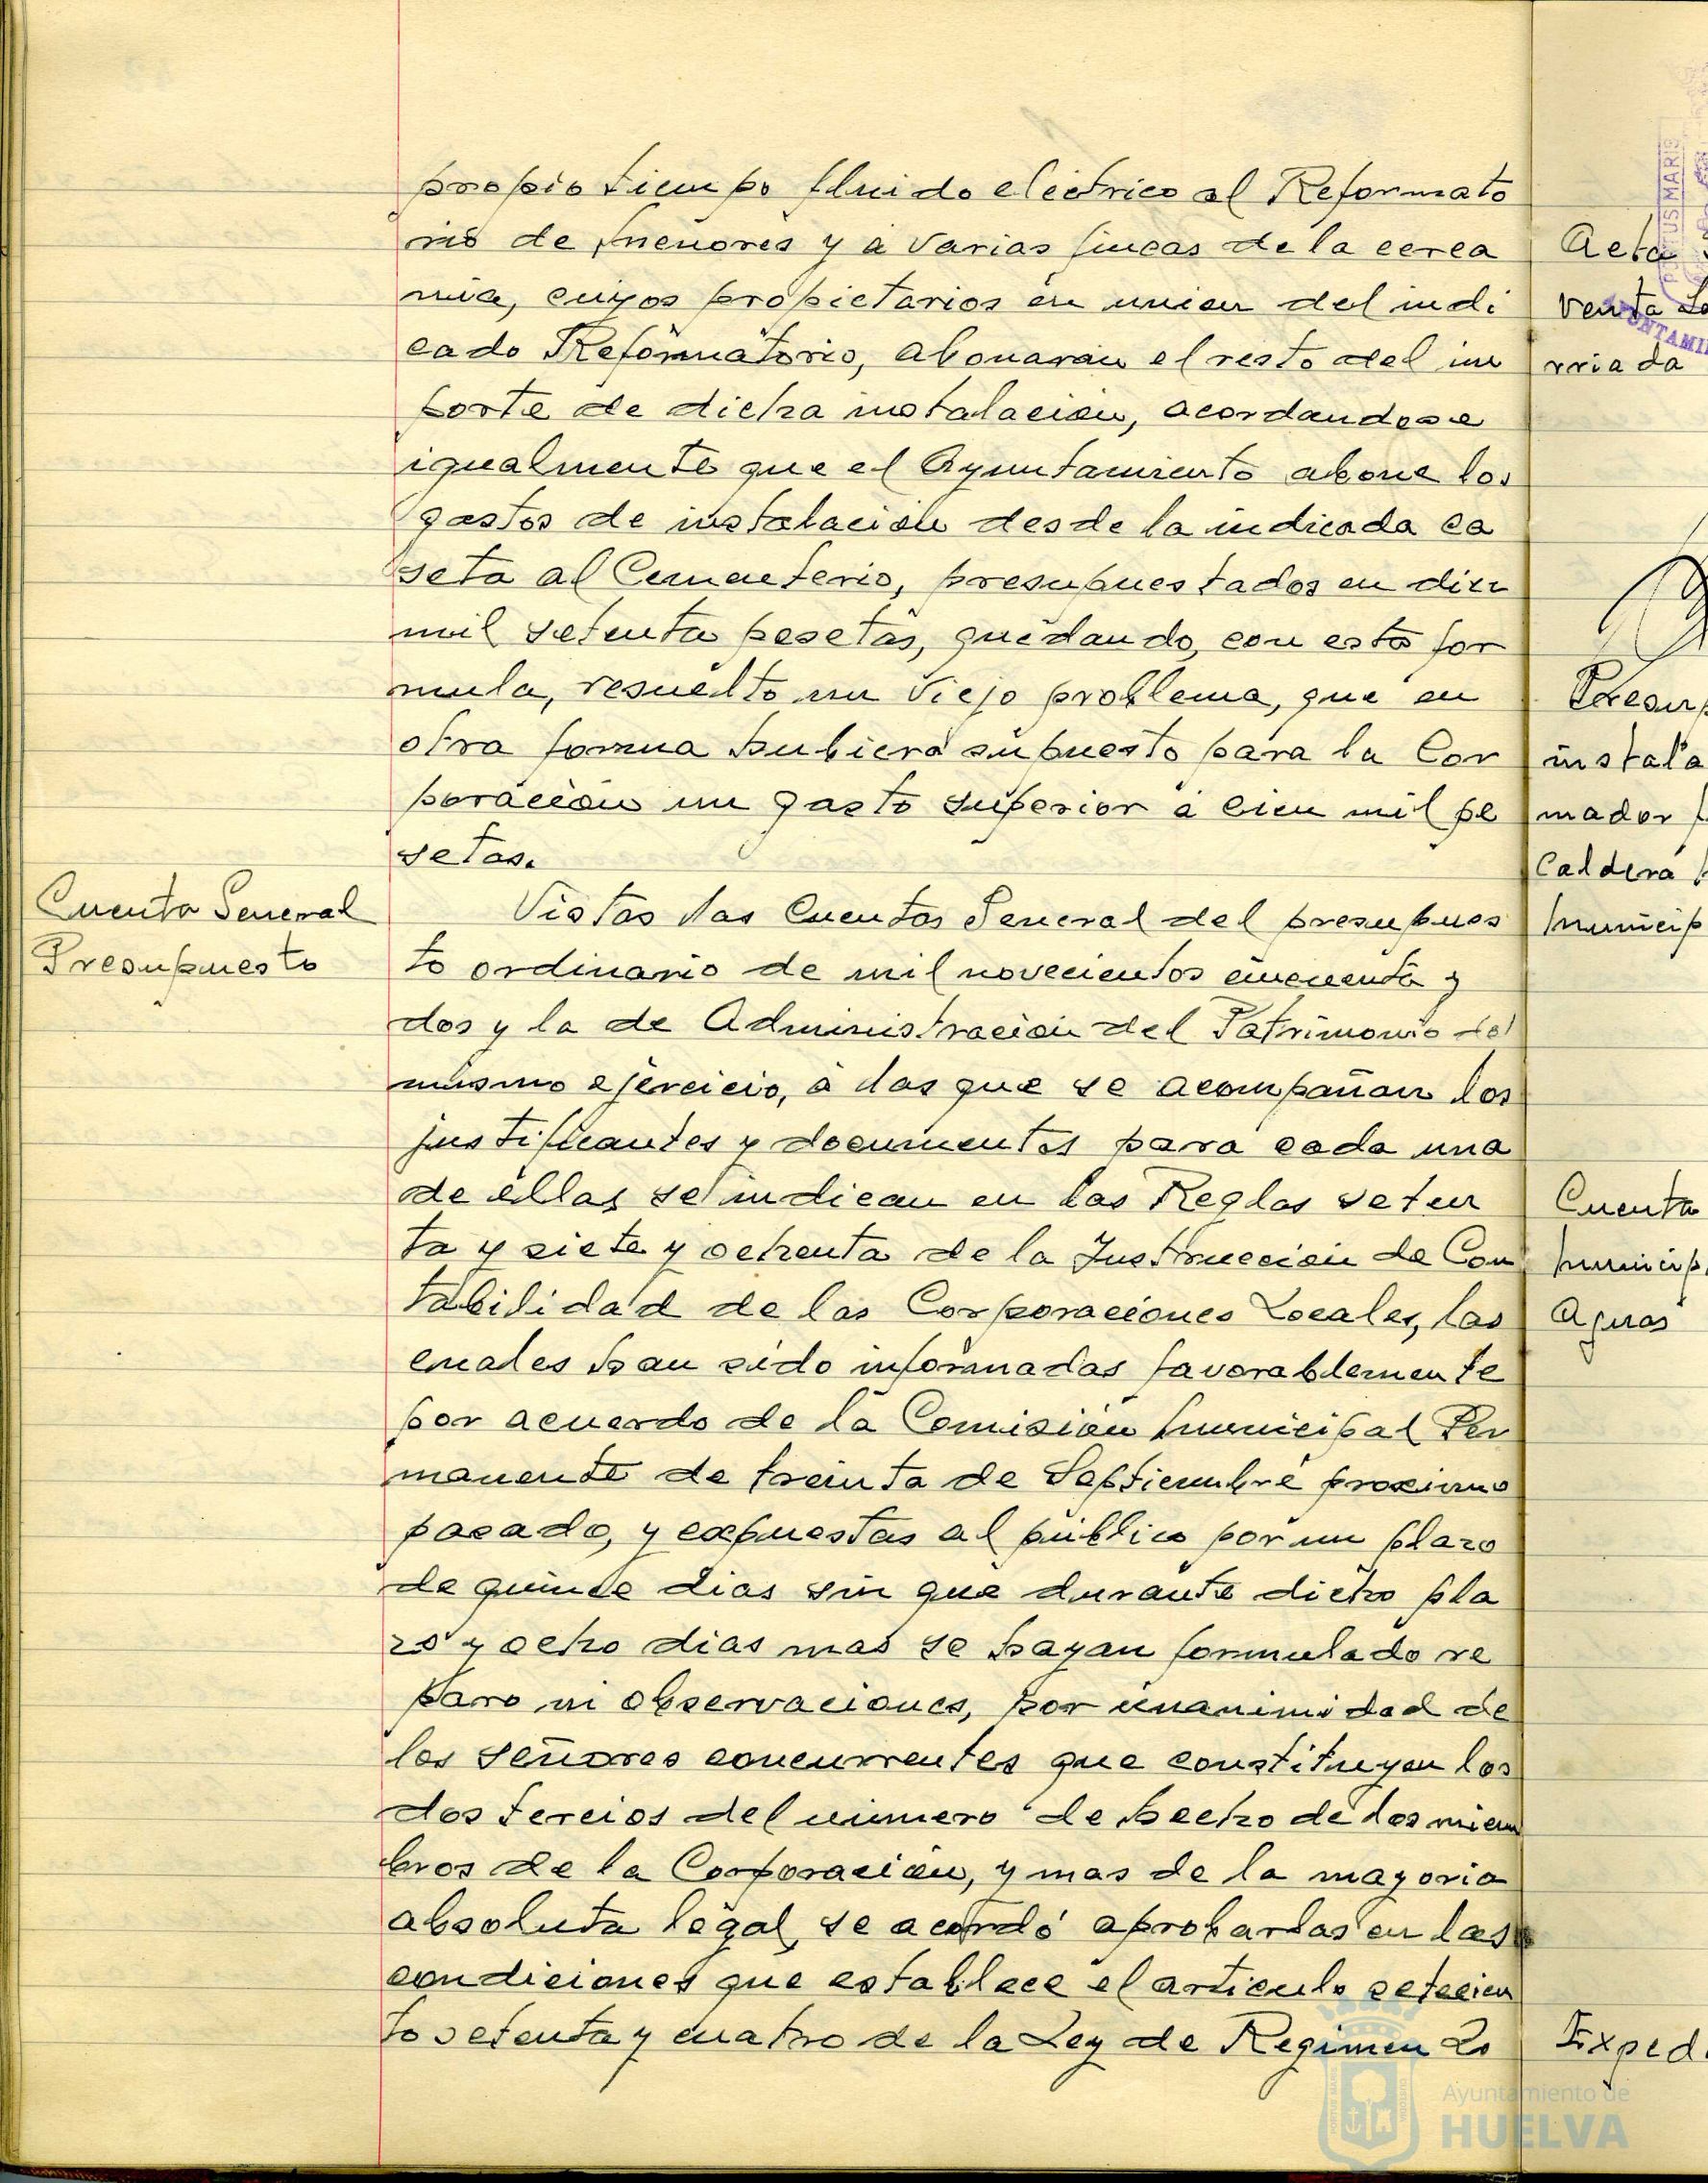 propio tiempo fluido electrico al Reformato
rio de menores y a varias fincas de la cerca
nia, cuyos propietarios en union del indi
cado Reformatorio, abonaran el resto del im
porte de dicha instalacion, acordandose
igualmente que el Ayuntamiento abone los
gastos de instalacion desde la indicada ca
seta al Cementerio, presupuestados en diez
mil setenta pesetas, quedando, con esta for
mula, resuelto un viejo problema, que en
otra forma hubiera supuesto para la Cor
poración un gasto superior a cien mil pe
setas.
Cuenta General
Presupuesto
Vistas las Cuentas General del presupues
to ordinario de mil novecientos cincuenta y
dos y la de Administracion del Patrimonio del
mismo ejercicio, a las que se acompañan los
justificantes y documentos para cada una
de ellas se indican en las Reglas seten
ta y siete y ochenta de la Instruccion de Con
tabilidad de las Corporaciones Locales, las
cuales han sido informadas favorablemente
por acuerdo de la Comision Municipal Per
manente de treinta de Septiembre proximo
pasado, y expuestas al público por un plazo
de quince dias sin que durante dicho pla
zo y ocho dias mas se hayan formulado re
paro ni observaciones, por unanimidad de
los señores concurrentes que constituyen los
dos tercios del número de hecho de los miem
bros de la Corporacion, y mas de la mayoria
absoluta legal, se acordó aprobarlas en las
condiciones que establece el articulo setecien
to setenta y cuatro de la Ley de Regimen Lo
Acta
Venta
rriada
instala
mador
Caldera
Municip
Cuenta
Municip
Aguas
Exped
Ayuntamiento de
HUELVA